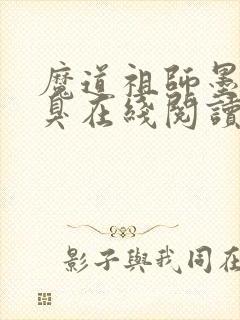 魔道祖師墨
臭在綫閱讀
影子與我同在